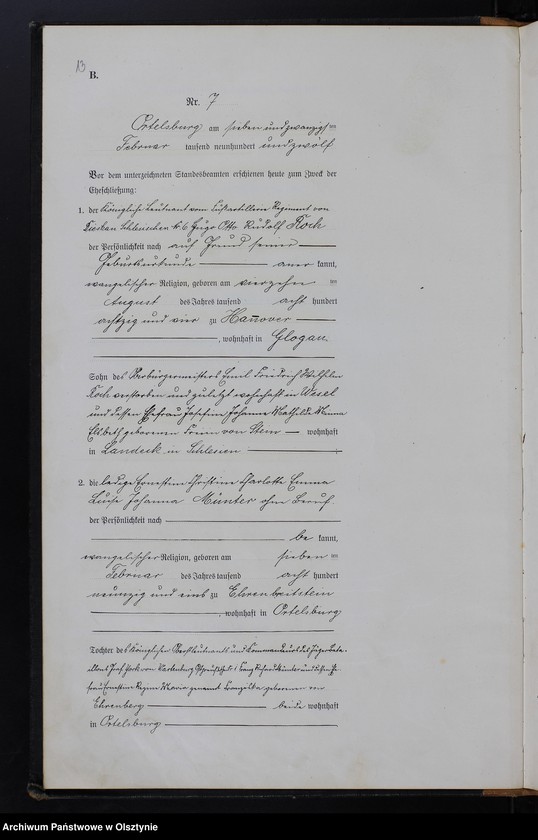 13
B.
Nr. 7
Ortelsburg am sieben und zwanzigsten
Februar tausend neunhundert und zwölf
Vor dem unterzeichneten Standesbeamten erschienen heute zum Zweck der
Eheschließung:
1. der Königliche Leutnant vom Fußartillerie Regiment von
Dieskau Schlesischen № 6 Hugo Otto Rudolf Koch
der Persönlichkeit nach auf Grund seiner
Geburtsurkunde anerkannt,
evangelischer Religion, geboren am vierzehnten
August des Jahres tausend acht hundert
achtzig und vier zu Hannover
, wohnhaft in Glogau.
Sohn des Oberbürgermeisters Emil Friedrich Wilhelm
Koch verstorben und zuletzt wohnhaft in Wesel
und dessen Ehefrau Josefine Johanne Mathilde Minna
Elsbeth geborenen Freiin von Stein wohnhaft
in Landeck in Schlesien
2. die ledige Ernestine Christine Charlotte Emma
Luise Johanna Münter ohne Beruf
der Persönlichkeit nach
be kannt,
evangelischer Religion, geboren am sieben ten
Februar des Jahres tausend acht hundert
neunzig und eins zu Ehrenbreitstein
, wohnhaft in Ortelsburg
Tochter des Königlichen Oberstleutnants und Kommandeurs des Jägerbatai-
llons Graf York von Wartenburg Ostpreußisches № 1 und dessen Ehe-
frau Ernestine geborenen von
Ehrenberg beide wohnhaft
in Ortelsburg
Archiwum Państwowe w Olsztynie